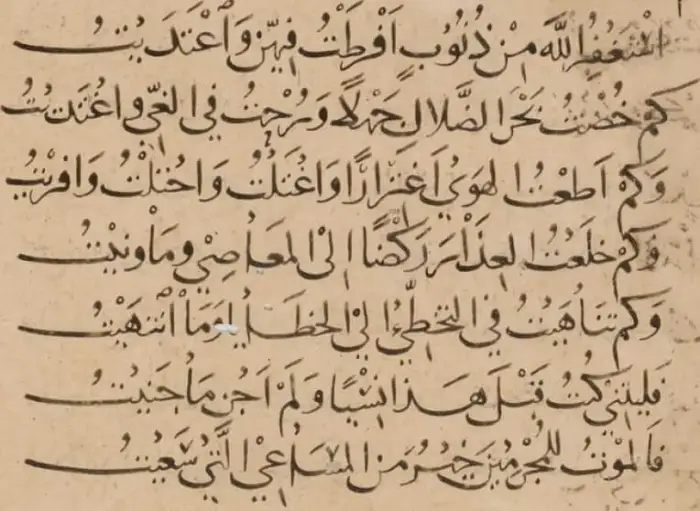 اَسْتَغْفِرُ اللّٰهَ مِنْ ذُنُوْبٍ اَفْرَطْتُ فِيْهِنَّ وَاعْتَدَيْتُ
كَمْ خُضْتُ بَحْرَ الضَّلَالِ جَهْلًا وَرُحْتُ فِي الغَيِّ وَاغْتَدَيْتُ
وَكَمْ اَطَعْتُ الهَوٰي اغْتِرَارًا وَاغْتَلْتُ وَاحْتَلْتُ وَافْتَرَيْتُ
وَكَمْ خَلَعْتُ العِذَارَ رَكْضًا اِلَى المَعَاصِيْ وَمَا وَنَيْتُ
وَكَمْ تَنَاهَيْتُ فِي التَّخَطِّيْ اِلَي الخَطَايَا وَمَا انْتَهَيْتُ
فَلَيْتَنِيْ كُنْتُ قَبْلَ هٰذَا نَسْيًا وَلَمْ اَجْنِ مَا جَنَيْتُ
فَالْمَوْتُ لِلْمُجْرِمِيْنَ خَيْرٌ مِنَ المَسَاعِيْ الَّتِيْ سَعَيْتُ